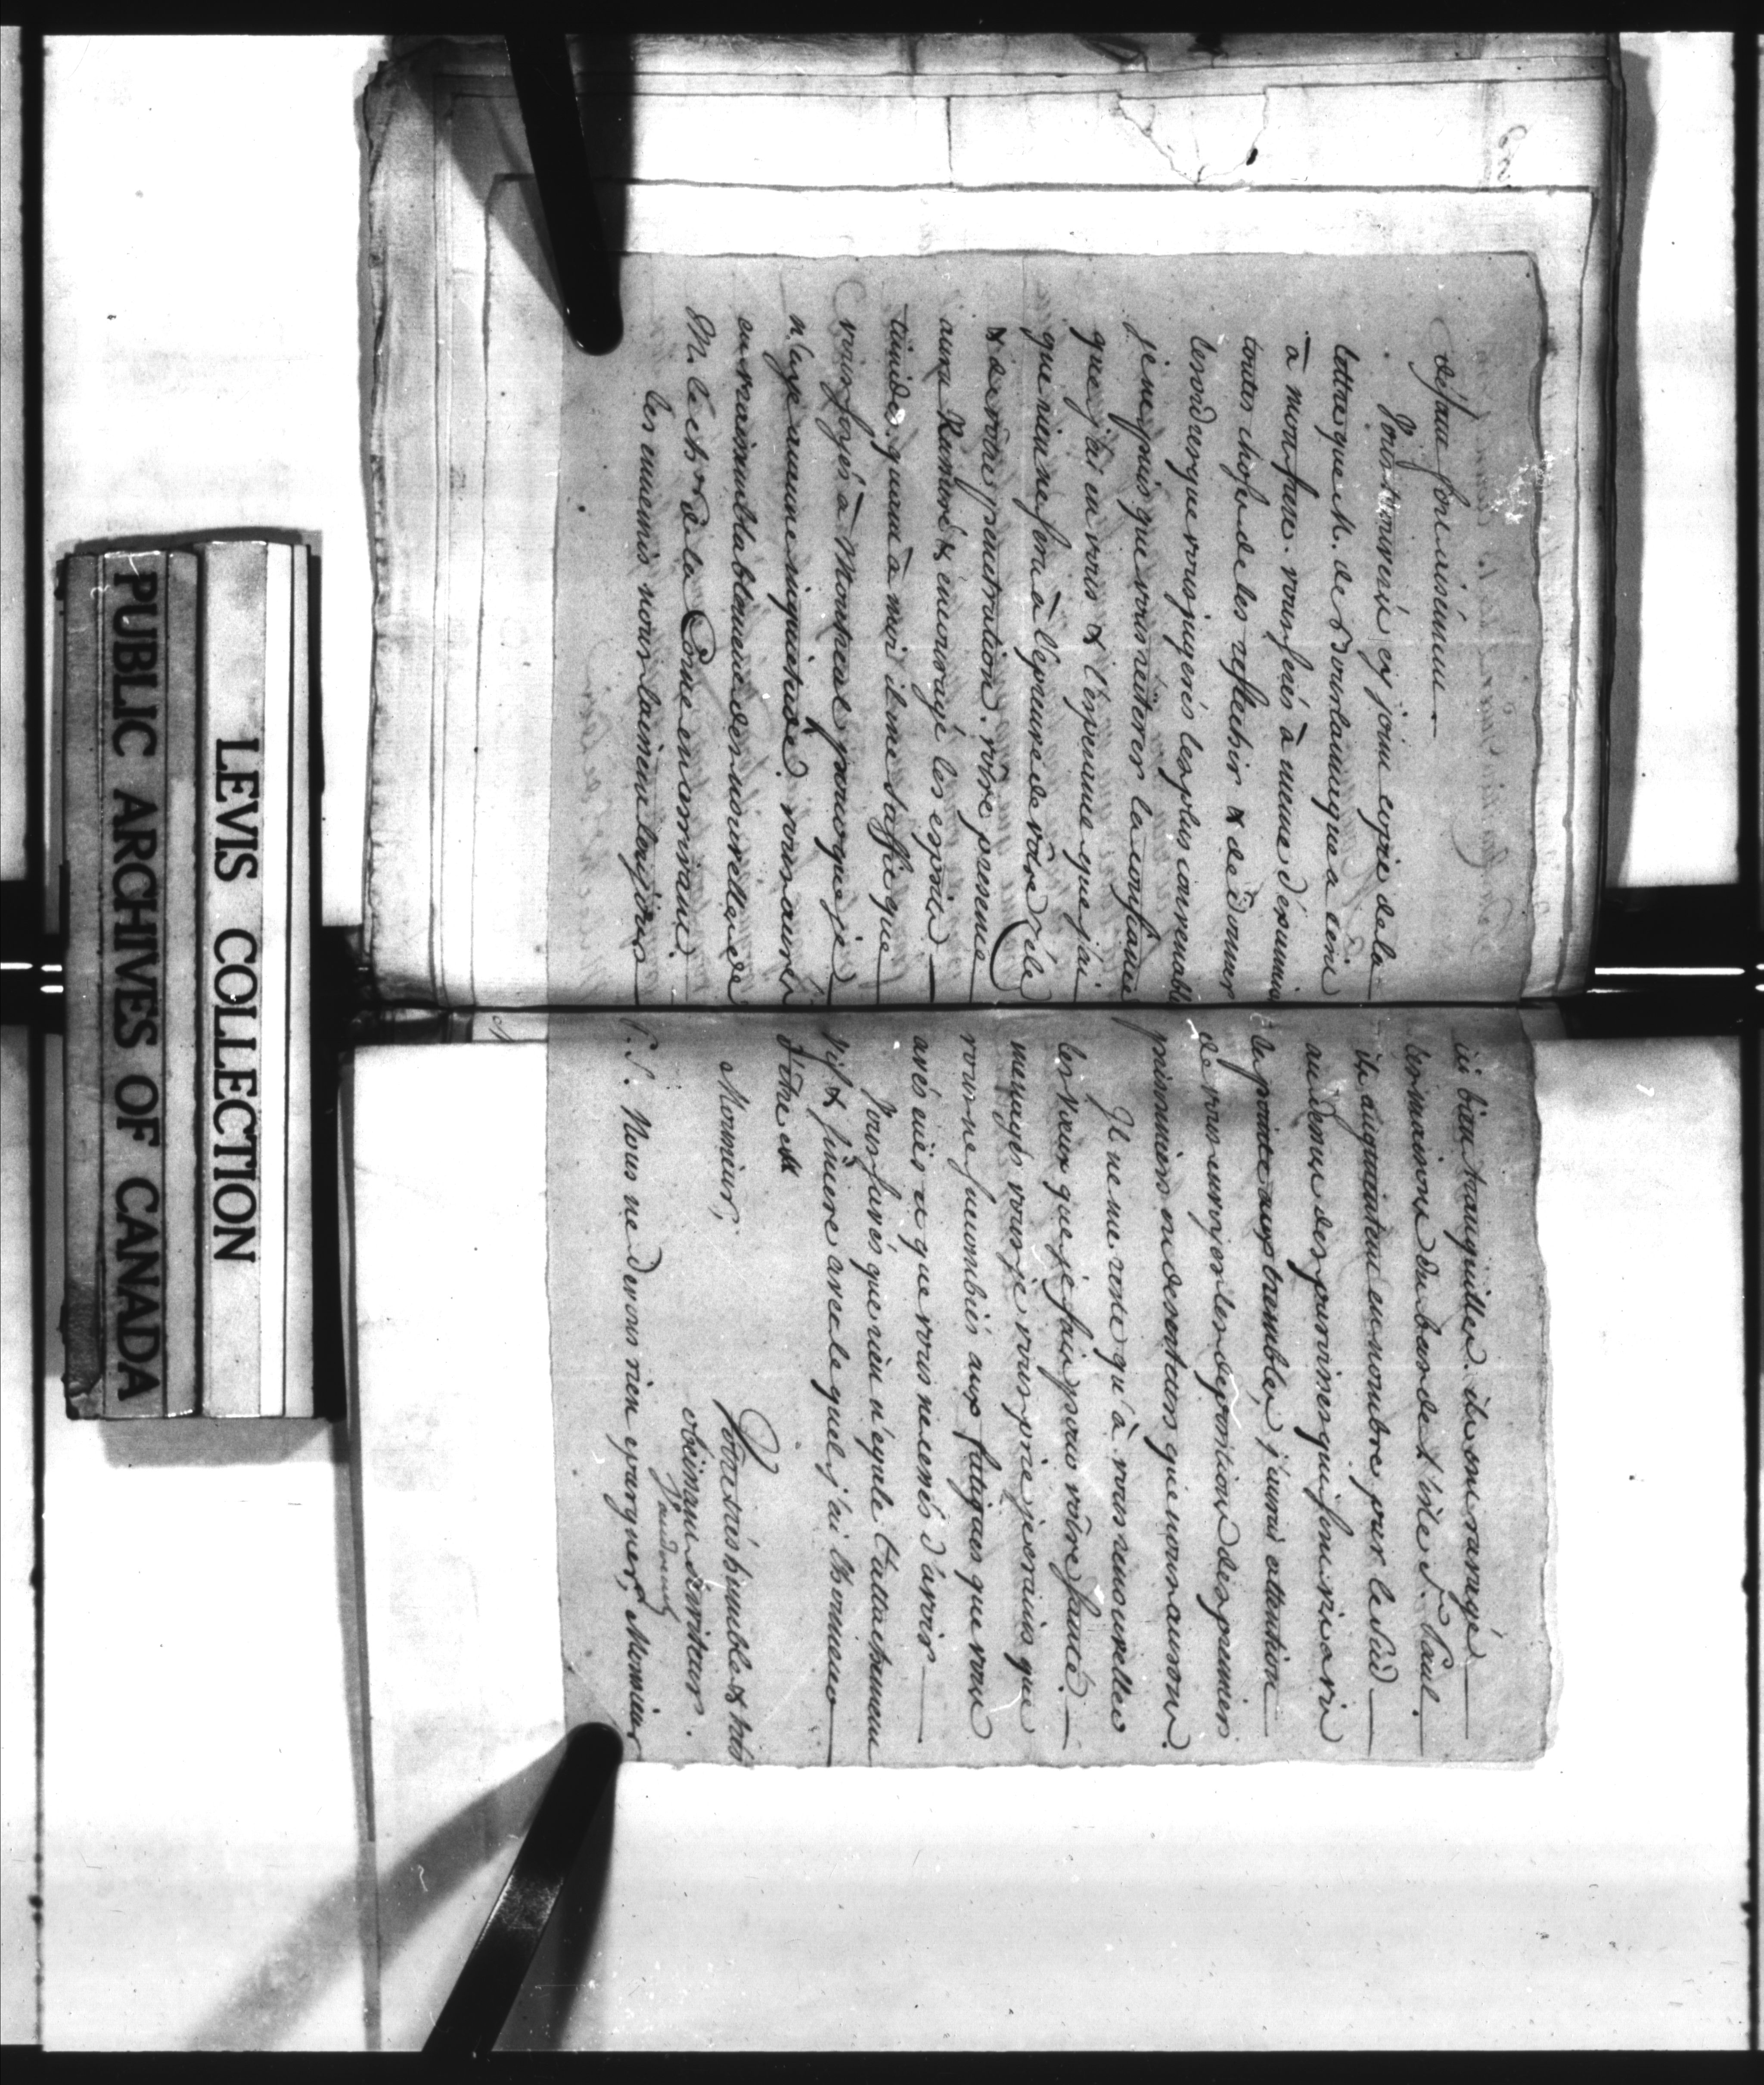 défaut forcerément.
Vous trouverés cy joint copie de la
lettre que M. de Bourlamaque a écrit
à mon frere. vous serés à meme d'examiner
toutes choses de les reflechir & de donner
les ordres que vous jugerés les plus convenables
je ne puis que vous réiterer la confiance
que j'ai en vous & l'épreuve que j'ai
que rien ne sera à l'épreuve de vôtre zéle
& de vôtre penetration. vôtre presence
aura ranimé & encouragé les esprits
timides. quant à moi il me suffit que
vous soyés à Montreal pour que je
n'aye aucune inquietude. vous aurés
vraisemblablement des nouvelles de
M. le ch.er de la Corne en arrivant.
les ennemis nous laissent toujours
ici bien tranquilles. ils ont ravagé
les maisons du bas de l'isle S.t Paul.
ils augmentent en nombre par le Sud
au dessus des guerriers qui sont vis a vis
la pointe aux trembles, j'aurai attention
de vous envoyer les depositions des premiers
prisonniers ou deserteurs que nous aurons.
Il ne me reste qu'à vous renouveller
les vœux que je fais pour vôtre santé.
menagés vous je vous prie je crains que
vous ne succombiés aux fatigues que vous
avés miès ce que vous ne cessés d'avoir
Vous savés que rien n'egale l'attachement
vif & sincere avec le quel j'ai l'honneur
d'être &a
Monsieur,
Vôtre trés humble & trés
obéissant serviteur.
Vaudreuil
P.S. Nous ne devons rien epargner, Monsieur
LEVIS COLLECTION
PUBLIC ARCHIVES OF CANADA